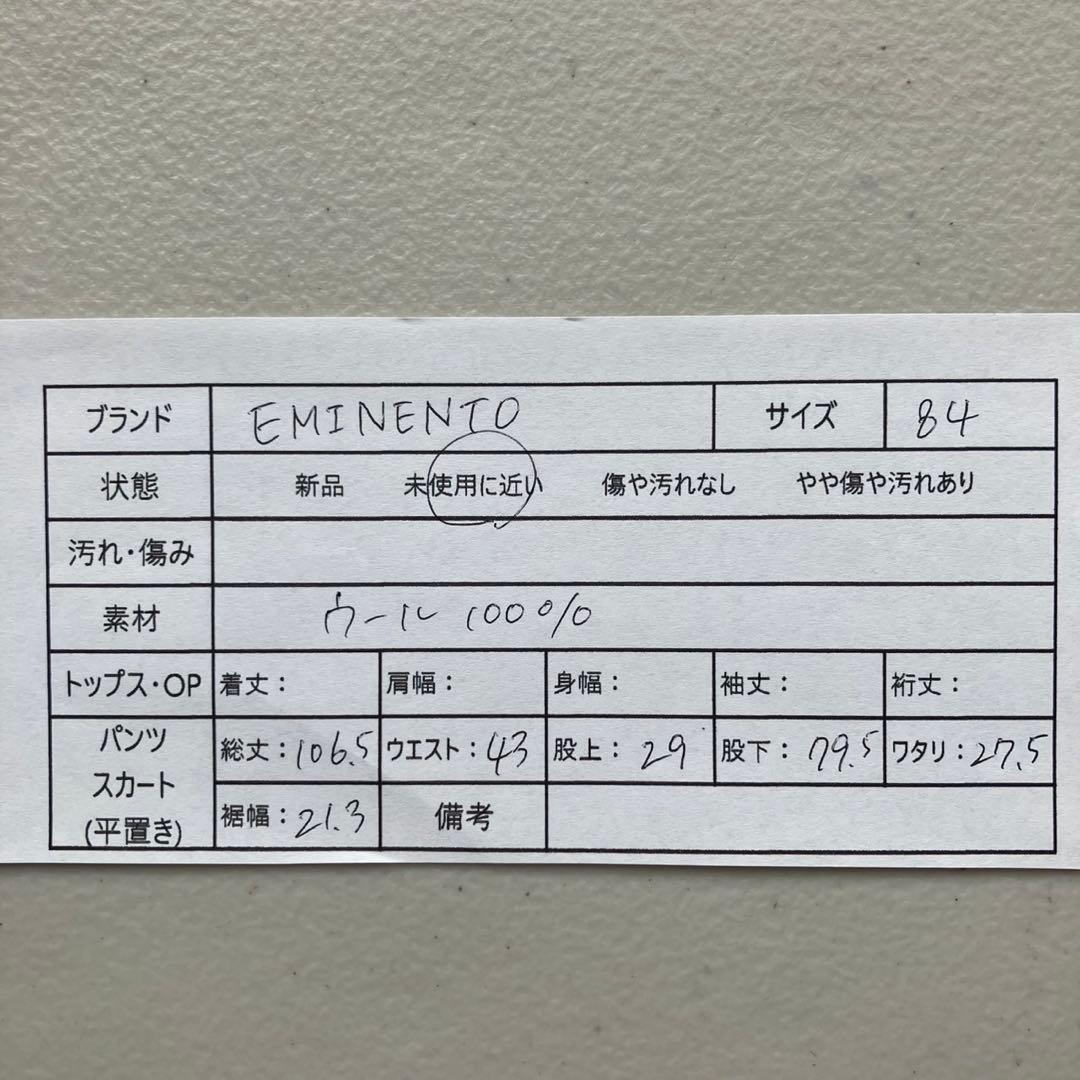 ブランド EMINENTO サイズ 84
状態 新品 未使用に近い 傷や汚れなし やや傷や汚れあり
汚れ・傷み
素材 ウール 100%
トップス・OP 着丈: 肩幅: 身幅: 袖丈: 裄丈:
パンツ スカート (平置き) 総丈:106.5 ウエスト:43 股上:29 股下:79.5 ワタリ:27.5
裾幅:21.3 備考